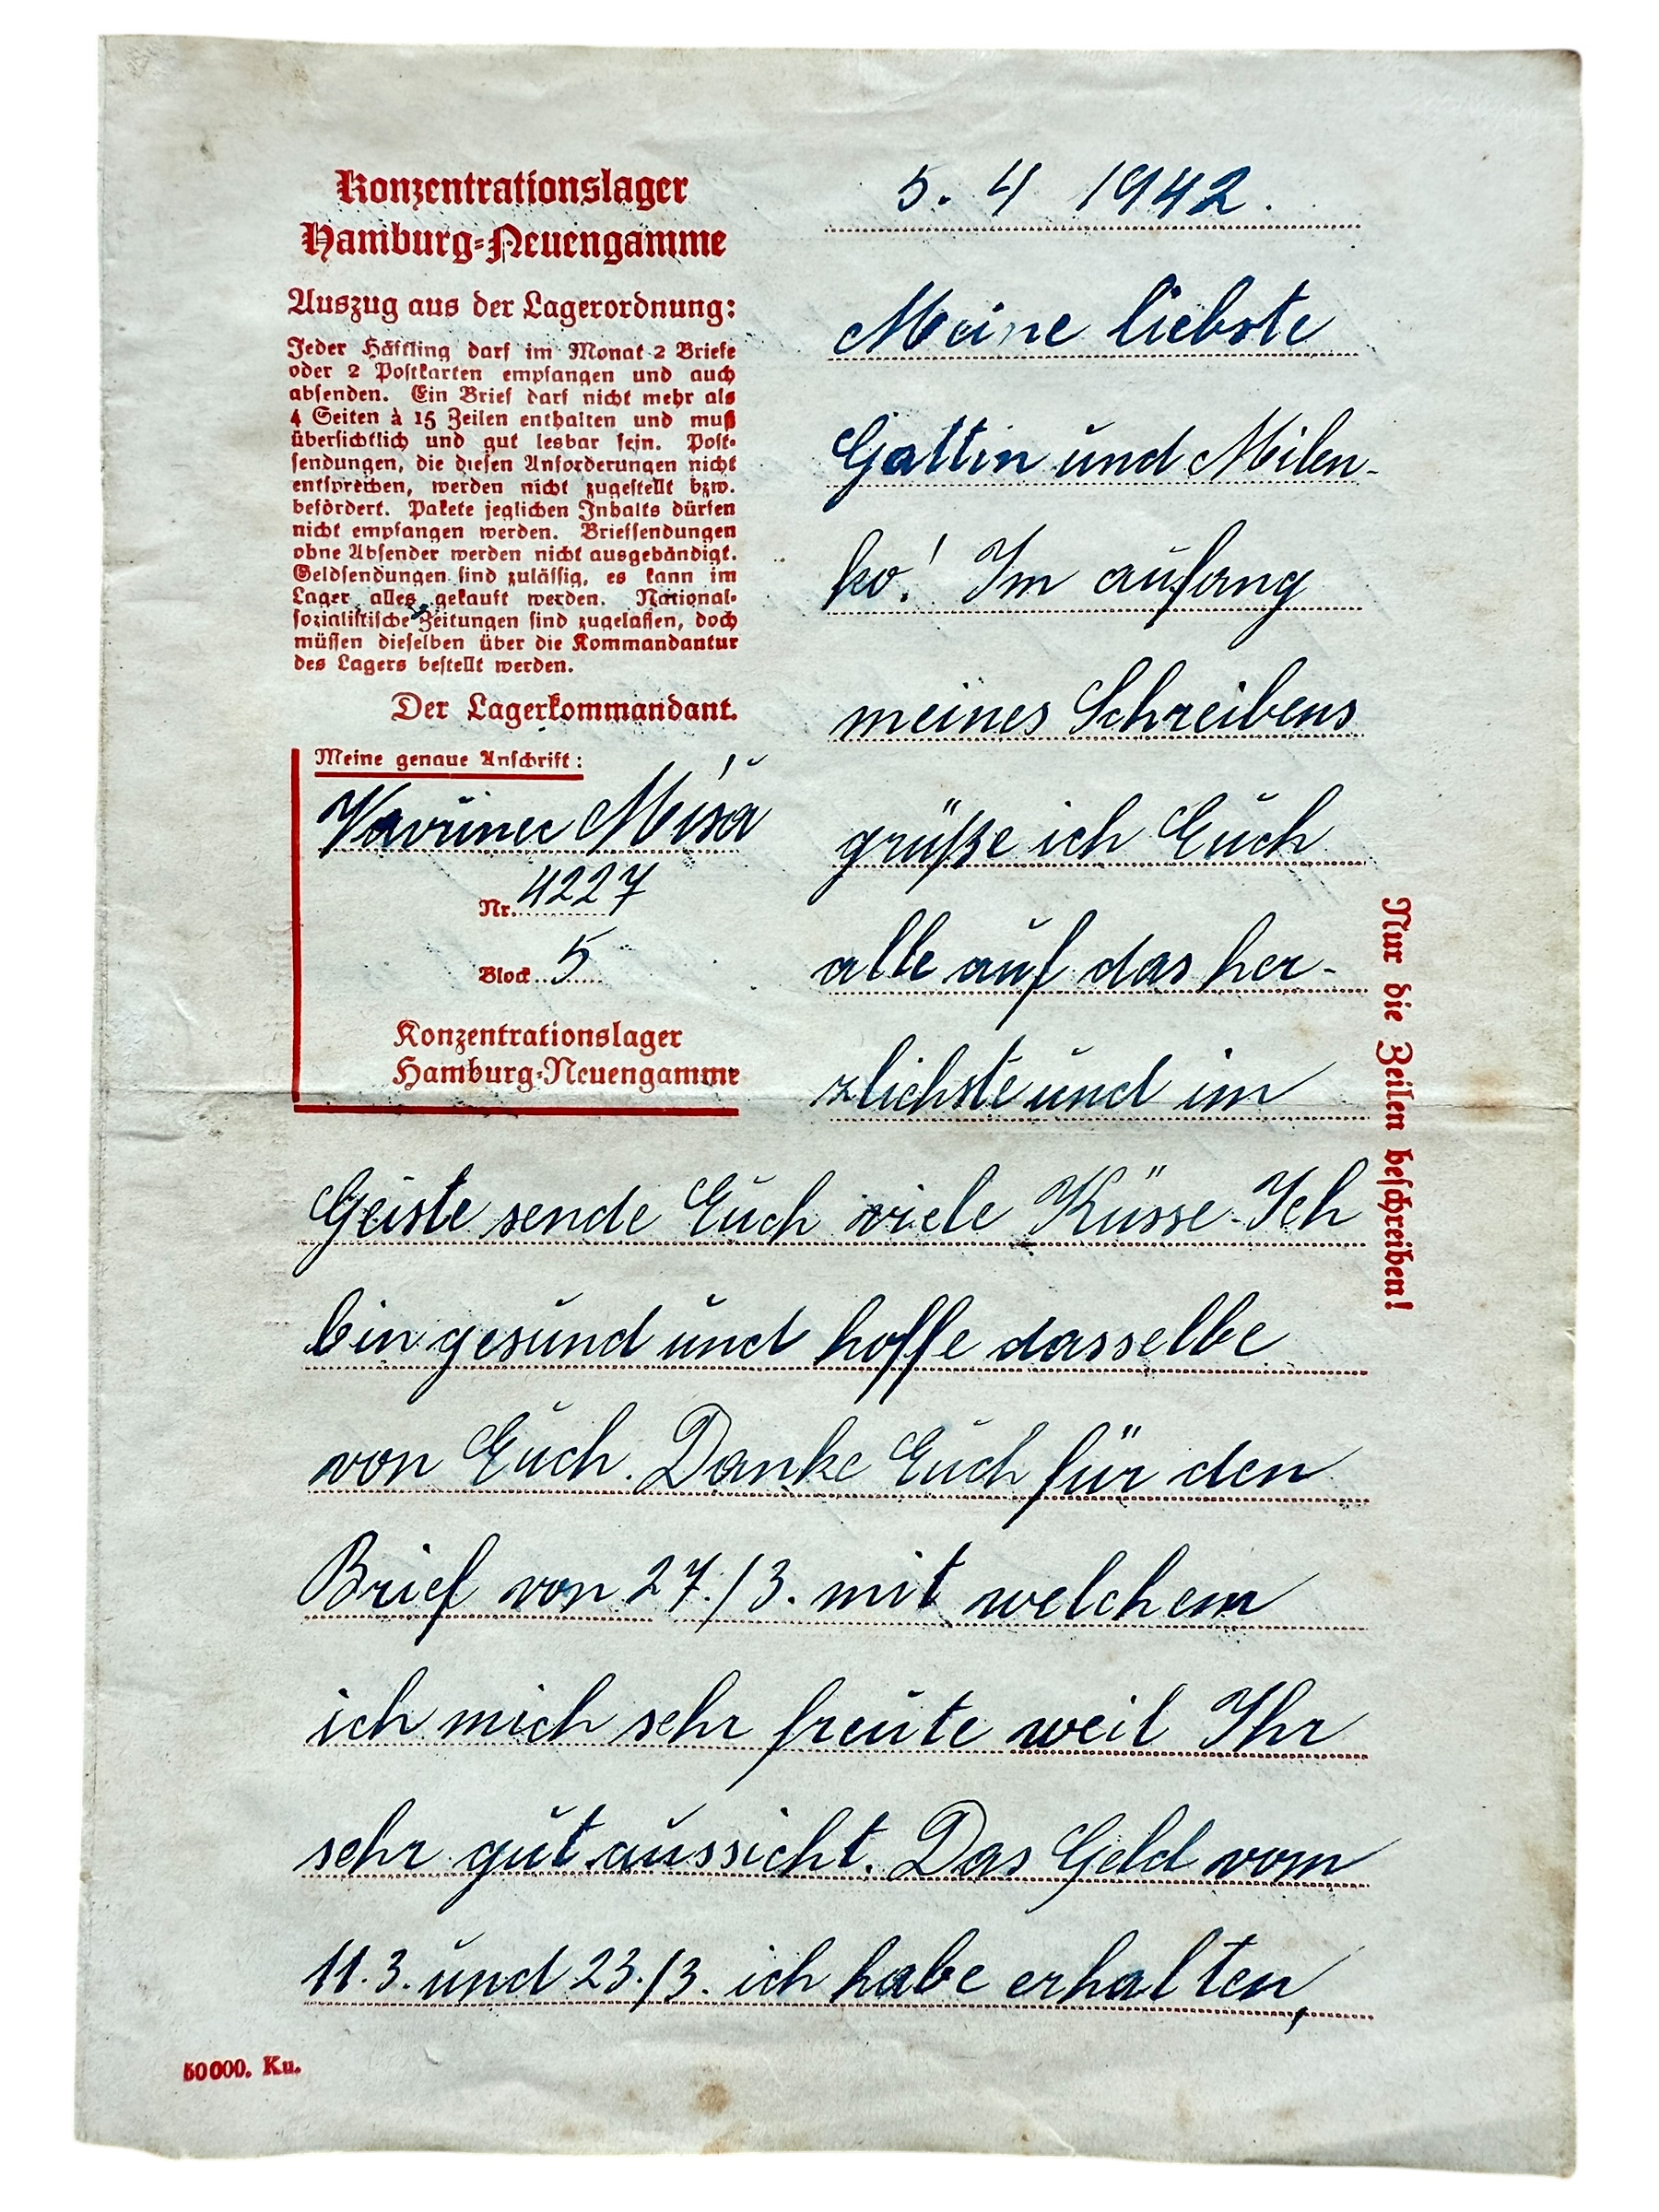 Konzentrationslager
Hamburg-Neuengamme
Auszug aus der Lagerordnung:
Jeder Häftling darf im Monat 2 Briefe
oder 2 Postkarten empfangen und auch
absenden. Ein Brief darf nicht mehr als
4 Seiten à 15 Zeilen enthalten und muß
übersichtlich und gut lesbar sein. Post-
sendungen, die diesen Anforderungen nicht
entsprechen, werden nicht zugestellt bzw.
befördert. Pakete jeglichen Inhalts dürfen
nicht empfangen werden. Briefsendungen
ohne Absender werden nicht ausgehändigt.
Geldsendungen sind zulässig, es kann im
Lager alles gekauft werden. National-
sozialistische Zeitungen sind zugelassen, doch
müssen dieselben über die Kommandantur
des Lagers bestellt werden.
Der Lagerkommandant.
Meine genaue Anschrift:
Vavřinec Míša
Nr. 4227
Block 5
Konzentrationslager
Hamburg-Neuengamme
5. 4 1942.
Meine liebste
Gattin und Milen-
ko! Im aufang
meines Schreibens
grüße ich Euch
alle auf das her-
zlichste und im
Geiste sende Euch viele Küsse. Ich
bin gesund und hoffe dasselbe
von Euch. Danke Euch für den
Brief von 27./3. mit welchem
ich mich sehr freute weil Ihr
sehr gut aussicht. Das Geld vom
11.3. und 23./3. ich habe erhalten,
Nur die Zeilen beschreiben!
50000. Ku.